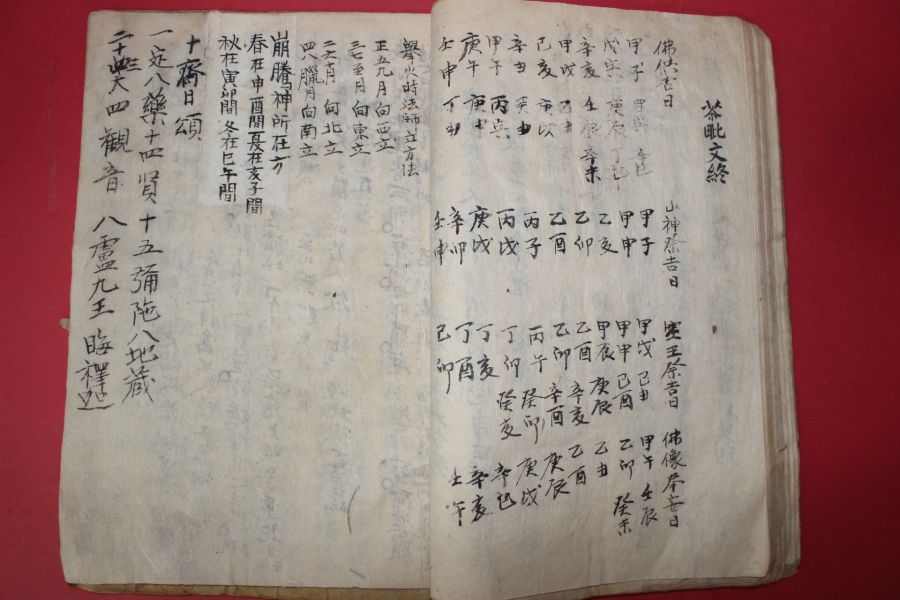 茶毗文終
佛供吉日
甲子
辛亥 壬辰 辛未
甲戌
己亥
辛丑 癸丑
甲午 丙寅
庚午 庚戌
壬申 丁丑
山神祭吉日
甲子
甲申
乙亥
乙卯
乙酉
丙子
丙戌
庚戌
辛卯
壬申
竈王祭吉日
甲戌 己丑
甲申 己酉
甲辰 庚辰
乙酉 辛亥
乙卯 辛酉
丙午 癸卯
丁卯 癸亥
丁亥
丁酉
己卯
佛像奉安日
甲午 壬辰
乙卯 癸未
乙丑
乙酉
庚辰
庚戌
辛巳
辛亥
壬午
擧火時法師立方法
正五九月向西立
三七至月向東立
二六十月向北立
四八臘月向南立
崩騰神所在方
春在申酉間夏在亥子間
秋在寅卯間冬在巳午間
十齋日頌
一定八藥十四賢十五彌陁八地藏
四觀音八盧九王晦釋迦